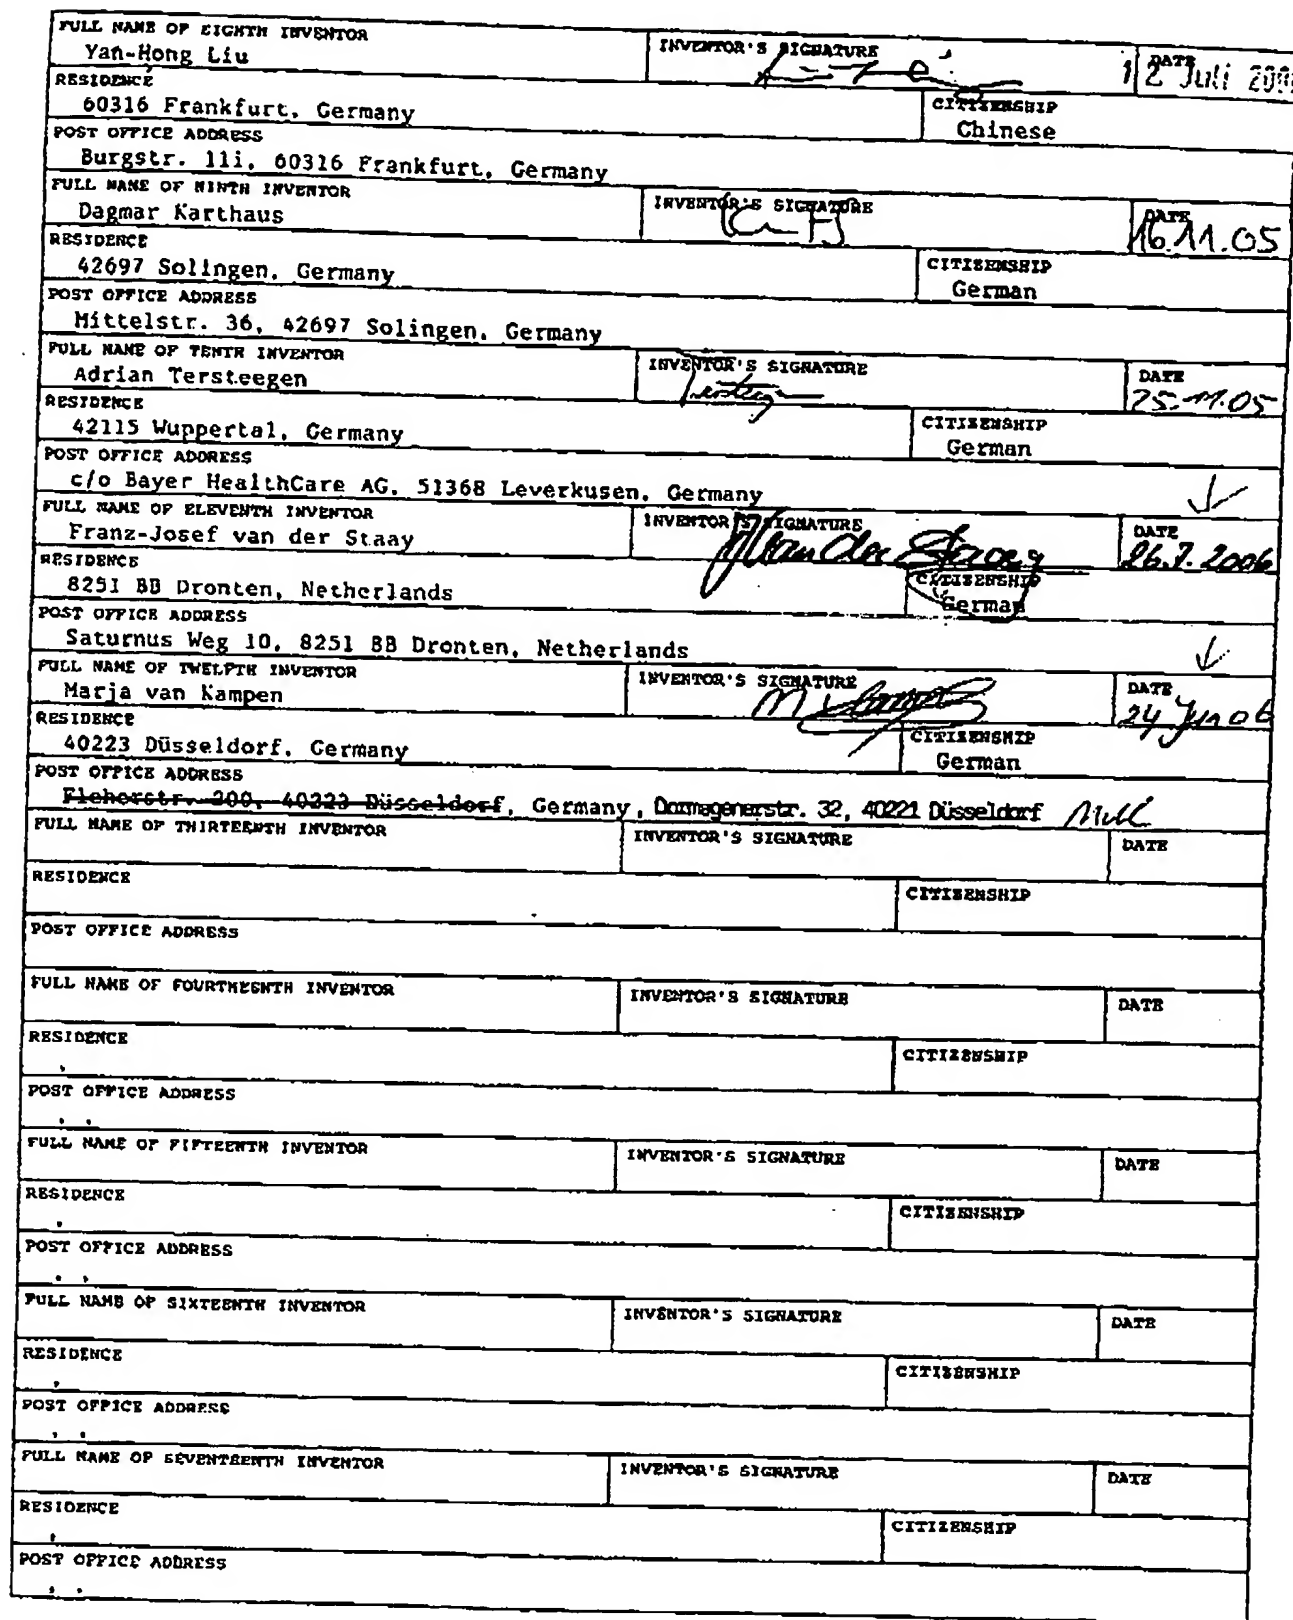 FULL NAME OF EIGHTH INVENTOR INVENTOR'S SIGNATURE DATE
Yan-Hong Liu 12 Juli
RESIDENCE CITIZENSHIP
60316 Frankfurt, Germany Chinese
POST OFFICE ADDRESS
Burgstr. 11i, 60316 Frankfurt, Germany
FULL NAME OF NINTH INVENTOR INVENTOR'S SIGNATURE DATE
Dagmar Karthaus 16.11.05
RESIDENCE CITIZENSHIP
42697 Solingen, Germany German
POST OFFICE ADDRESS
Mittelstr. 36, 42697 Solingen, Germany
FULL NAME OF TENTH INVENTOR INVENTOR'S SIGNATURE DATE
Adrian Tersteegen 25.11.05
RESIDENCE CITIZENSHIP
42115 Wuppertal, Germany German
POST OFFICE ADDRESS
c/o Bayer HealthCare AG, 51368 Leverkusen, Germany
FULL NAME OF ELEVENTH INVENTOR INVENTOR'S SIGNATURE DATE
Franz-Josef van der Staay van der Staay 26.7.2006
RESIDENCE CITIZENSHIP
8251 BB Dronten, Netherlands German
POST OFFICE ADDRESS
Saturnus Weg 10, 8251 BB Dronten, Netherlands
FULL NAME OF TWELFTH INVENTOR INVENTOR'S SIGNATURE DATE
Marja van Kampen 24 06
RESIDENCE CITIZENSHIP
40223 Düsseldorf, Germany German
POST OFFICE ADDRESS
Fleherstr. 200, 40223 Düsseldorf, Germany, Dormagenerstr. 32, 40221 Düsseldorf
FULL NAME OF THIRTEENTH INVENTOR INVENTOR'S SIGNATURE DATE
RESIDENCE CITIZENSHIP
POST OFFICE ADDRESS
FULL NAME OF FOURTHEENTH INVENTOR INVENTOR'S SIGNATURE DATE
RESIDENCE CITIZENSHIP
POST OFFICE ADDRESS
FULL NAME OF FIFTEENTH INVENTOR INVENTOR'S SIGNATURE DATE
RESIDENCE CITIZENSHIP
POST OFFICE ADDRESS
FULL NAME OF SIXTEENTH INVENTOR INVENTOR'S SIGNATURE DATE
RESIDENCE CITIZENSHIP
POST OFFICE ADDRESS
FULL NAME OF SEVENTEENTH INVENTOR INVENTOR'S SIGNATURE DATE
RESIDENCE CITIZENSHIP
POST OFFICE ADDRESS